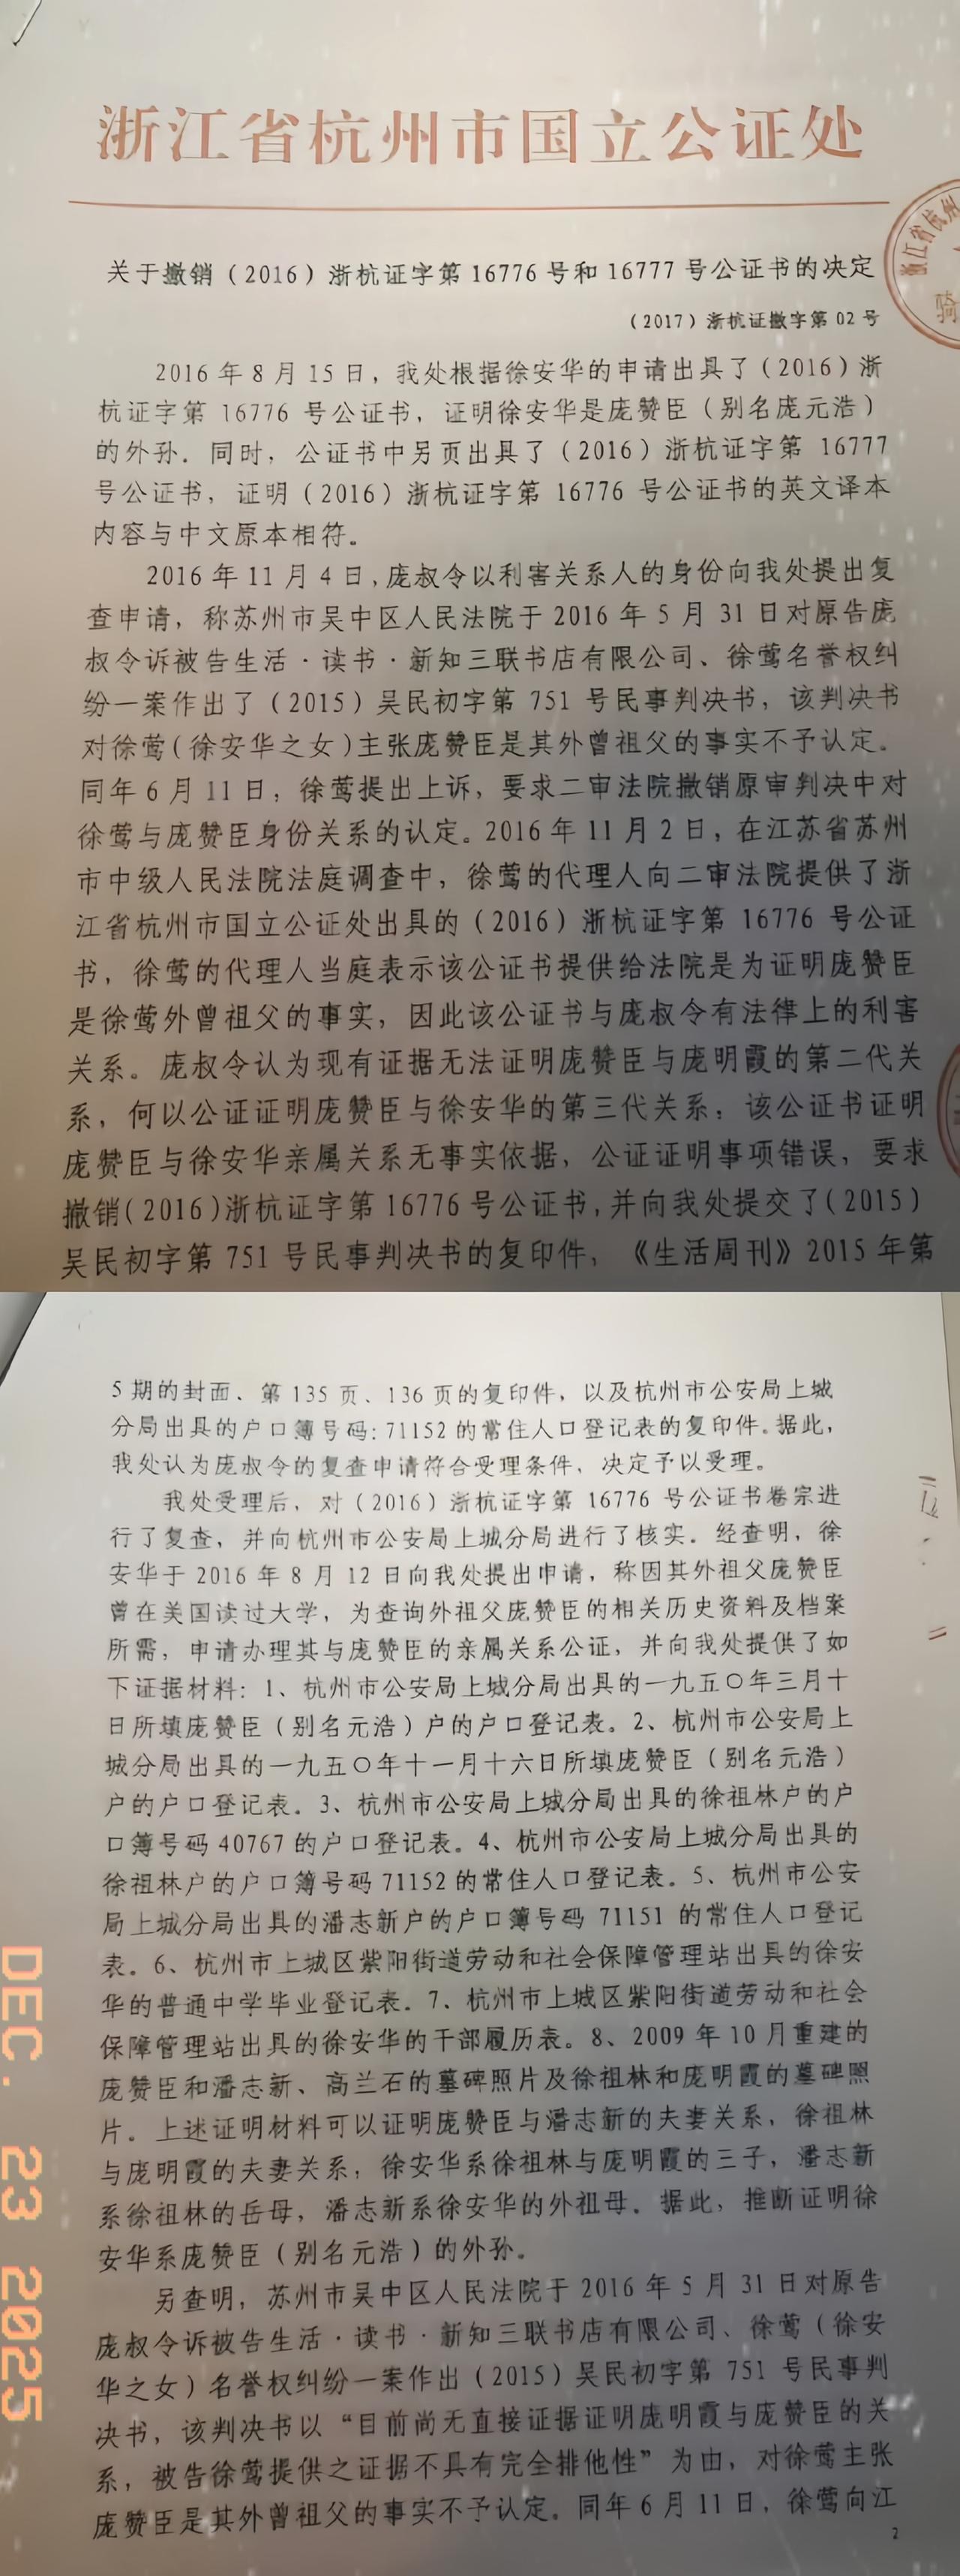 浙江省杭州市国立公证处
浙江省杭州
骑
关于撤销（2016）浙杭证字第16776号和16777号公证书的决定
（2017）浙杭证撤字第02号
2016年8月15日，我处根据徐安华的申请出具了（2016）浙
杭证字第 16776 号公证书，证明徐安华是庞赞臣（别名庞元浩）
的外孙．同时，公证书中另页出具了（2016）浙杭证字第 16777
号公证书，证明（2016）浙杭证字第 16776 号公证书的英文译本
内容与中文原本相符。
2016年11月4日，庞叔令以利害关系人的身份向我处提出复
查申请，称苏州市吴中区人民法院于2016年5月31日对原告庞
叔令诉被告生活·读书·新知三联书店有限公司、徐莺名誉权纠
纷一案作出了（2015）吴民初字第 751 号民事判决书，该判决书
对徐莺（徐安华之女）主张庞赞臣是其外曾祖父的事实不予认定。
同年6月11日，徐莺提出上诉，要求二审法院撤销原审判决中对
徐莺与庞赞臣身份关系的认定。2016年11月2日，在江苏省苏州
市中级人民法院法庭调查中，徐莺的代理人向二审法院提供了浙
江省杭州市国立公证处出具的（2016）浙杭证字第 16776 号公证
书，徐莺的代理人当庭表示该公证书提供给法院是为证明庞赞臣
是徐莺外曾祖父的事实，因此该公证书与庞叔令有法律上的利害
关系。庞叔令认为现有证据无法证明庞赞臣与庞明霞的第二代关
系，何以公证证明庞赞臣与徐安华的第三代关系；该公证书证明
庞赞臣与徐安华亲属关系无事实依据，公证证明事项错误，要求
撤销（2016）浙杭证字第16776号公证书，并向我处提交了（2015）
吴民初字第751号民事判决书的复印件，《生活周刊》2015年第
5期的封面、第135页、136页的复印件，以及杭州市公安局上城
分局出具的户口簿号码：71152的常住人口登记表的复印件。据此，
我处认为庞叔令的复查申请符合受理条件，决定予以受理。
我处受理后，对（2016）浙杭证字第 16776 号公证书卷宗进
行了复查，并向杭州市公安局上城分局进行了核实．经查明，徐
安华于2016年8月12日向我处提出申请，称因其外祖父庞赞臣
曾在美国读过大学，为查询外祖父庞赞臣的相关历史资料及档案
所需，申请办理其与庞赞臣的亲属关系公证，并向我处提供了如
下证据材料：1、杭州市公安局上城分局出具的一九五〇年三月十
日所填庞赞臣（别名元浩）户的户口登记表．2、杭州市公安局上
城分局出具的一九五〇年十一月十六日所填庞赞臣（别名元浩）
户的户口登记表．3、杭州市公安局上城分局出具的徐祖林户的户
口簿号码40767的户口登记表。4、杭州市公安局上城分局出具的
徐祖林户的户口簿号码71152的常住人口登记表．5、杭州市公安
局上城分局出具的潘志新户的户口簿号码 71151 的常住人口登记
表．6、杭州市上城区紫阳街道劳动和社会保障管理站出具的徐安
华的普通中学毕业登记表．7、杭州市上城区紫阳街道劳动和社会
保障管理站出具的徐安华的干部履历表。8、2009年10月重建的
庞赞臣和潘志新、高兰石的墓碑照片及徐祖林和庞明霞的墓碑照
片．上述证明材料可以证明庞赞臣与潘志新的夫妻关系，徐祖林
与庞明霞的夫妻关系；徐安华系徐祖林与庞明霞的三子，潘志新
系徐祖林的岳母，潘志新系徐安华的外祖母．据此，推断证明徐
安华系庞赞臣（别名元浩）的外孙。
另查明，苏州市吴中区人民法院于2016年5月31日对原告
庞叔令诉被告生活·读书·新知三联书店有限公司、徐莺（徐安
华之女）名誉权纠纷一案作出（2015）吴民初字第 751 号民事判
决书，该判决书以“目前尚无直接证据证明庞明霞与庞赞臣的关
系，被告徐莺提供之证据不具有完全排他性”为由，对徐莺主张
庞赞臣是其外曾祖父的事实不予认定。同年6月11日，徐莺向江
2
DEC. 23 2025